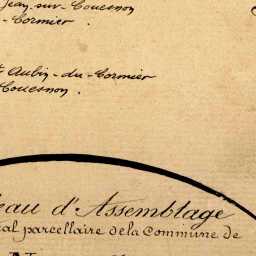 Jean-sur-Couesnon
-Cormier
Aubin-du-Cormier
Couesnon.
eau d'Assemblage
al parcellaire de la Commune de